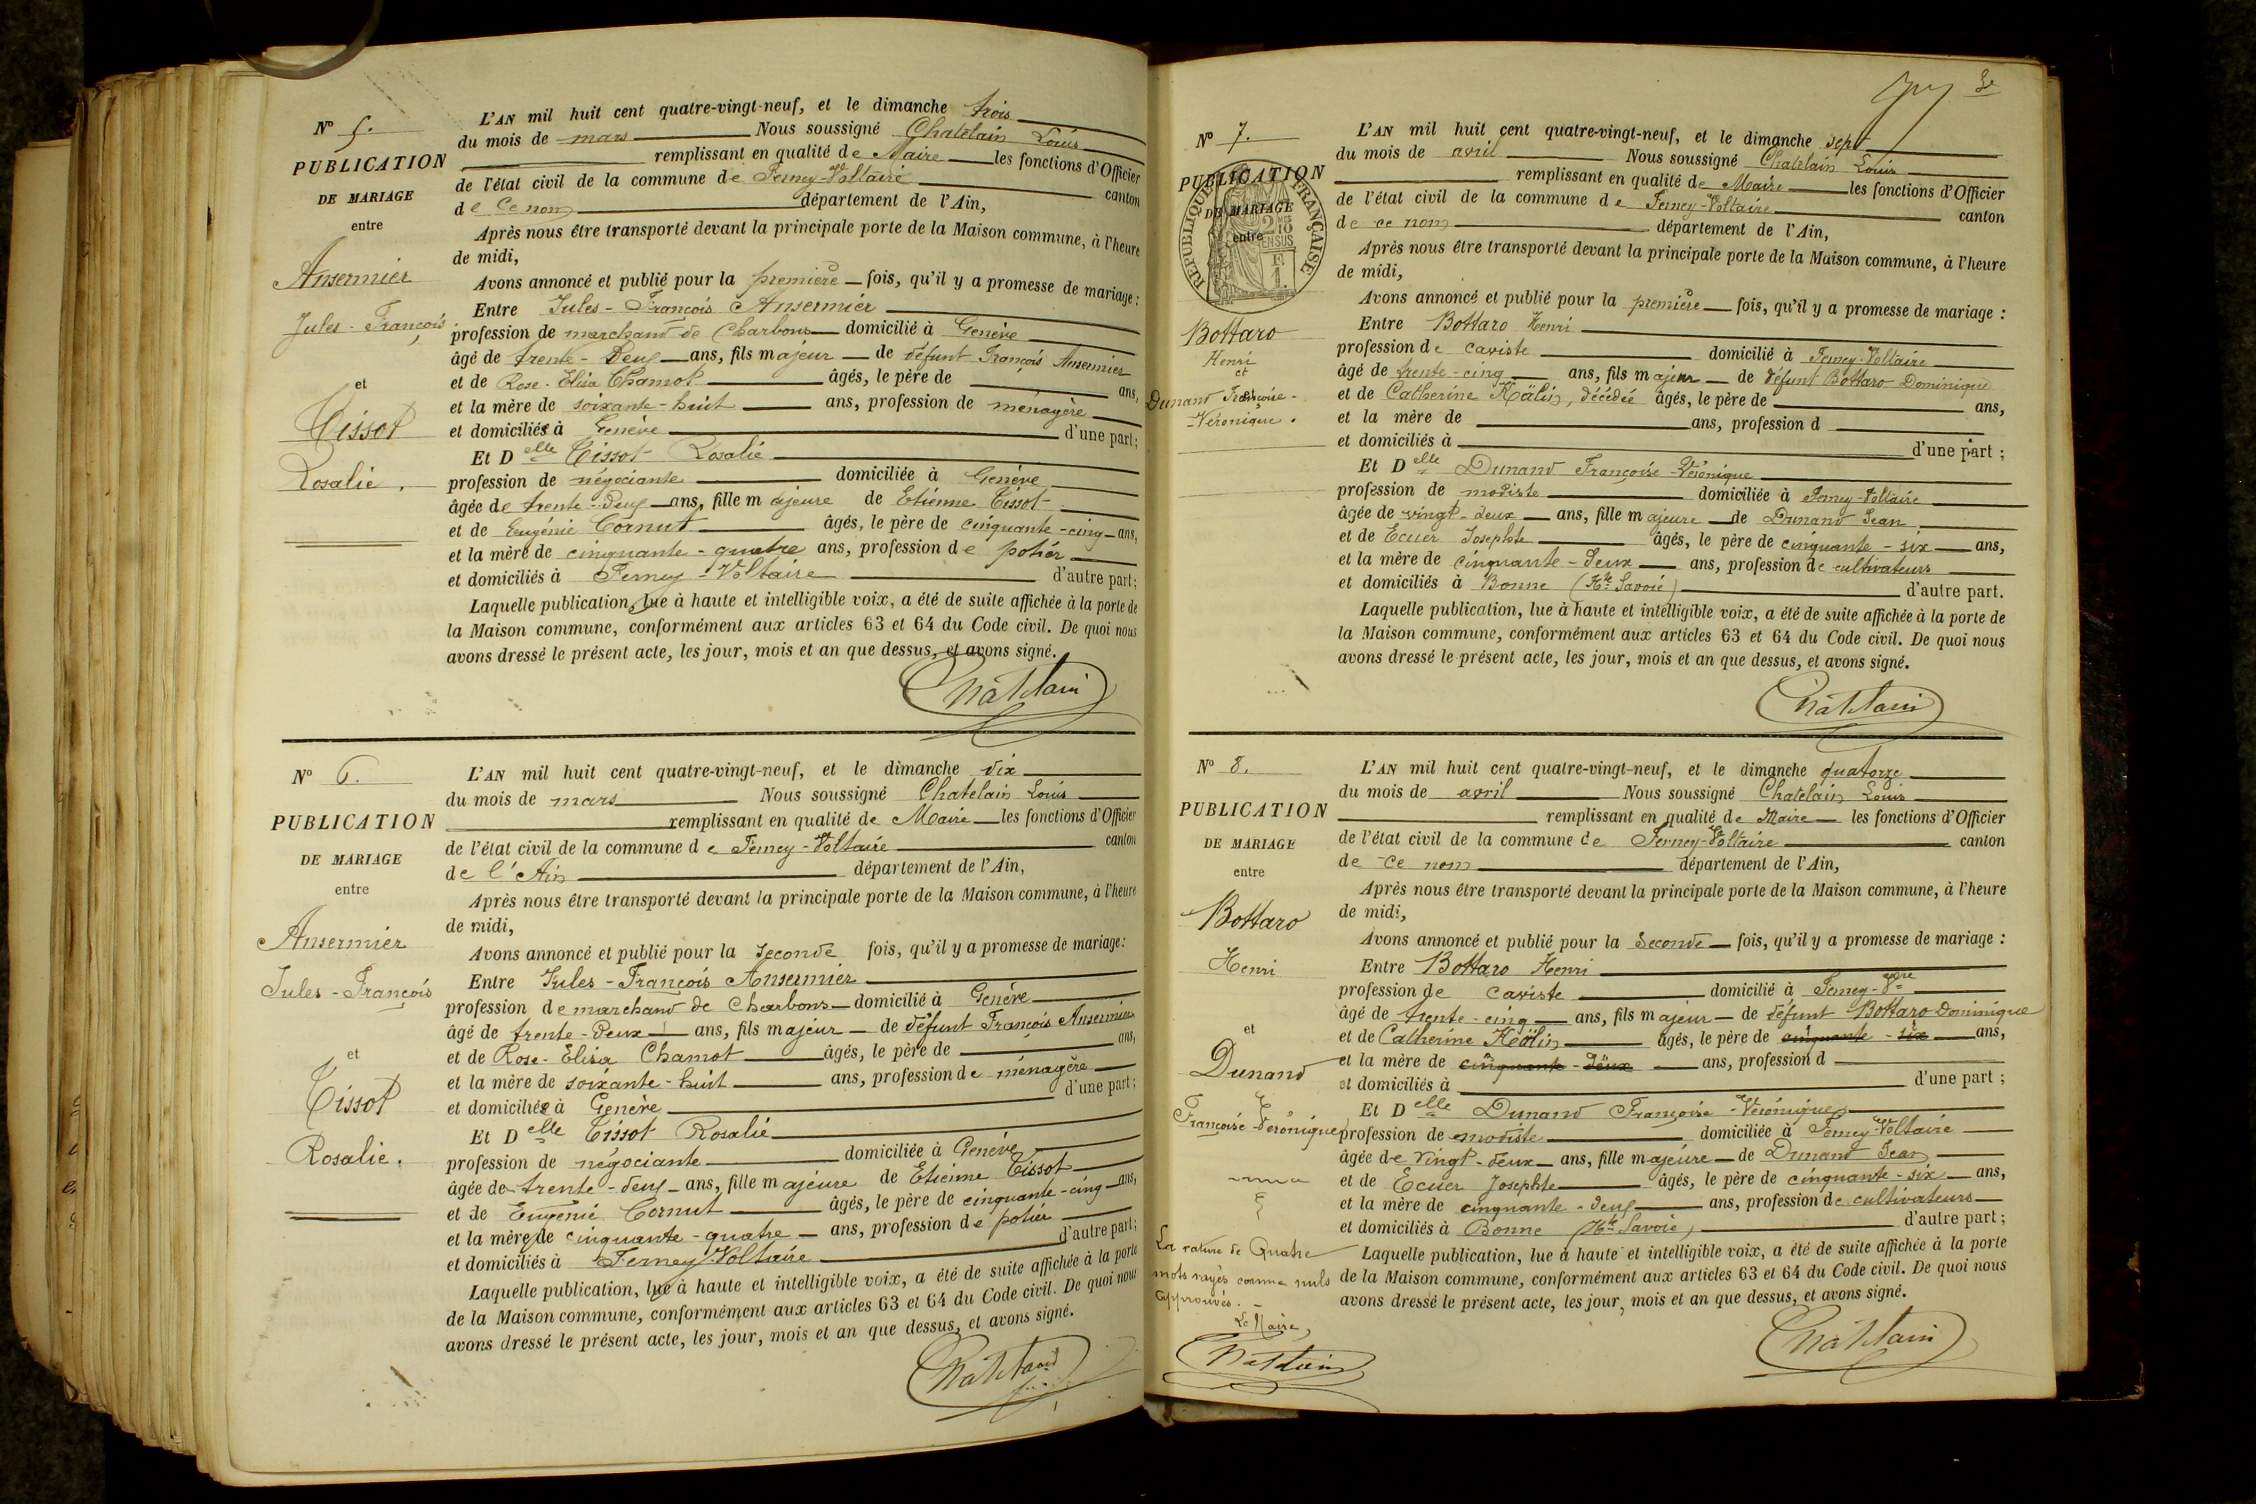 N° 5.
PUBLICATION
DE MARIAGE
entre
Ansermier
Jules - François
et
Tissot
Rosalie.
L'AN mil huit cent quatre-vingt-neuf, et le dimanche trois
du mois de mars Nous soussigné Chatelain Louis
remplissant en qualité de Maire les fonctions d'Officier
de l'état civil de la commune de Ferney-Voltaire canton
de Ce nom département de l'Ain,
Après nous être transporté devant la principale porte de la Maison commune, à l'heure
de midi,
Avons annoncé et publié pour la première fois, qu'il y a promesse de mariage :
Entre Jules - François Ansermier
profession de marchand de Charbons domicilié à Genève
âgé de trente - Deux ans, fils majeur de défunt François Ansermier
et de Rose - Elisa Chamot âgés, le père de ans,
et la mère de soixante - huit ans, profession de ménagère
et domiciliés à Genève d'une part ;
Et Delle Tissot Rosalie
profession de négociante domiciliée à Genève
âgée de trente - Deux ans, fille majeure de Etienne Tissot
et de Eugénie Cornut âgés, le père de cinquante - cinq ans,
et la mère de cinquante - quatre ans, profession de potier
et domiciliés à Ferney - Voltaire d'autre part ;
Laquelle publication, lue à haute et intelligible voix, a été de suite affichée à la porte de
la Maison commune, conformément aux articles 63 et 64 du Code civil. De quoi nous
avons dressé le présent acte, les jour, mois et an que dessus, et avons signé.
Chatelain
N° 6.
PUBLICATION
DE MARIAGE
entre
Ansermier
Jules - François
et
Tissot
Rosalie.
L'AN mil huit cent quatre-vingt-neuf, et le dimanche dix
du mois de mars Nous soussigné Chatelain Louis
remplissant en qualité de Maire les fonctions d'Officier
de l'état civil de la commune de Ferney - Voltaire canton
de l'Ain département de l'Ain,
Après nous être transporté devant la principale porte de la Maison commune, à l'heure
de midi,
Avons annoncé et publié pour la seconde fois, qu'il y a promesse de mariage :
Entre Jules - François Ansermier
profession de marchand de Charbons domicilié à Genève
âgé de trente - Deux ans, fils majeur de défunt François Ansermier
et de Rose - Elisa Chamot âgés, le père de ans,
et la mère de soixante - huit ans, profession de ménagère
et domiciliés à Genève d'une part ;
Et Delle Tissot Rosalie
profession de négociante domiciliée à Genève
âgée de trente - deux ans, fille majeure de Etienne Tissot
et de Eugénie Cornut âgés, le père de cinquante - cinq ans,
et la mère de cinquante - quatre ans, profession de potier
et domiciliés à Ferney - Voltaire d'autre part ;
Laquelle publication, lue à haute et intelligible voix, a été de suite affichée à la porte
de la Maison commune, conformément aux articles 63 et 64 du Code civil. De quoi nous
avons dressé le présent acte, les jour, mois et an que dessus, et avons signé.
Chatelain
N° 7.
PUBLICATION
DE MARIAGE
entre
RÉPUBLIQUE FRANÇAISE
Bottaro
Henri
et
Dunand Françoise -
- Véronique.
L'AN mil huit cent quatre-vingt-neuf, et le dimanche sept
du mois de avril Nous soussigné Chatelain Louis
remplissant en qualité de Maire les fonctions d'Officier
de l'état civil de la commune de Ferney - Voltaire canton
de ce nom département de l'Ain,
Après nous être transporté devant la principale porte de la Maison commune, à l'heure
de midi,
Avons annoncé et publié pour la première fois, qu'il y a promesse de mariage :
Entre Bottaro Henri
profession de caviste domicilié à Ferney - Voltaire
âgé de trente - cinq ans, fils majeur de défunt Bottaro Dominique
et de Catherine Kälin, décédée âgés, le père de ans,
et la mère de ans, profession d
et domiciliés à d'une part ;
Et Delle Dunand Françoise - Véronique
profession de modiste domiciliée à Ferney - Voltaire
âgée de vingt - deux ans, fille majeure de Dunand Jean
et de Ecuer Josephte âgés, le père de cinquante - six ans,
et la mère de cinquante - Deux ans, profession de cultivateurs
et domiciliés à Bonne (Hte Savoie) d'autre part.
Laquelle publication, lue à haute et intelligible voix, a été de suite affichée à la porte de
la Maison commune, conformément aux articles 63 et 64 du Code civil. De quoi nous
avons dressé le présent acte, les jour, mois et an que dessus, et avons signé.
Chatelain
N° 8.
PUBLICATION
DE MARIAGE
entre
Bottaro
Henri
et
Dunand
Françoise - Véronique
La rature de Quatre
mots rayés comme nuls
approuvés.
Le Maire,
Chatelain
L'AN mil huit cent quatre-vingt-neuf, et le dimanche quatorze
du mois de avril Nous soussigné Chatelain Louis
remplissant en qualité de Maire les fonctions d'Officier
de l'état civil de la commune de Ferney - Voltaire canton
de ce nom département de l'Ain,
Après nous être transporté devant la principale porte de la Maison commune, à l'heure
de midi,
Avons annoncé et publié pour la Seconde fois, qu'il y a promesse de mariage :
Entre Bottaro Henri
profession de caviste domicilié à Ferney - Vre
âgé de trente - cinq ans, fils majeur de défunt Bottaro Dominique
et de Catherine Kälin âgés, le père de cinquante - six ans,
et la mère de cinquante - deux ans, profession d
et domiciliés à d'une part ;
Et Delle Dunand Françoise - Véronique
profession de modiste domiciliée à Ferney - Voltaire
âgée de vingt - deux ans, fille majeure de Dunand Jean
et de Ecuer Josephte âgés, le père de cinquante - six ans,
et la mère de cinquante - deux ans, profession de cultivateurs
et domiciliés à Bonne (Hte Savoie) d'autre part ;
Laquelle publication, lue à haute et intelligible voix, a été de suite affichée à la porte
de la Maison commune, conformément aux articles 63 et 64 du Code civil. De quoi nous
avons dressé le présent acte, les jour, mois et an que dessus, et avons signé.
Chatelain